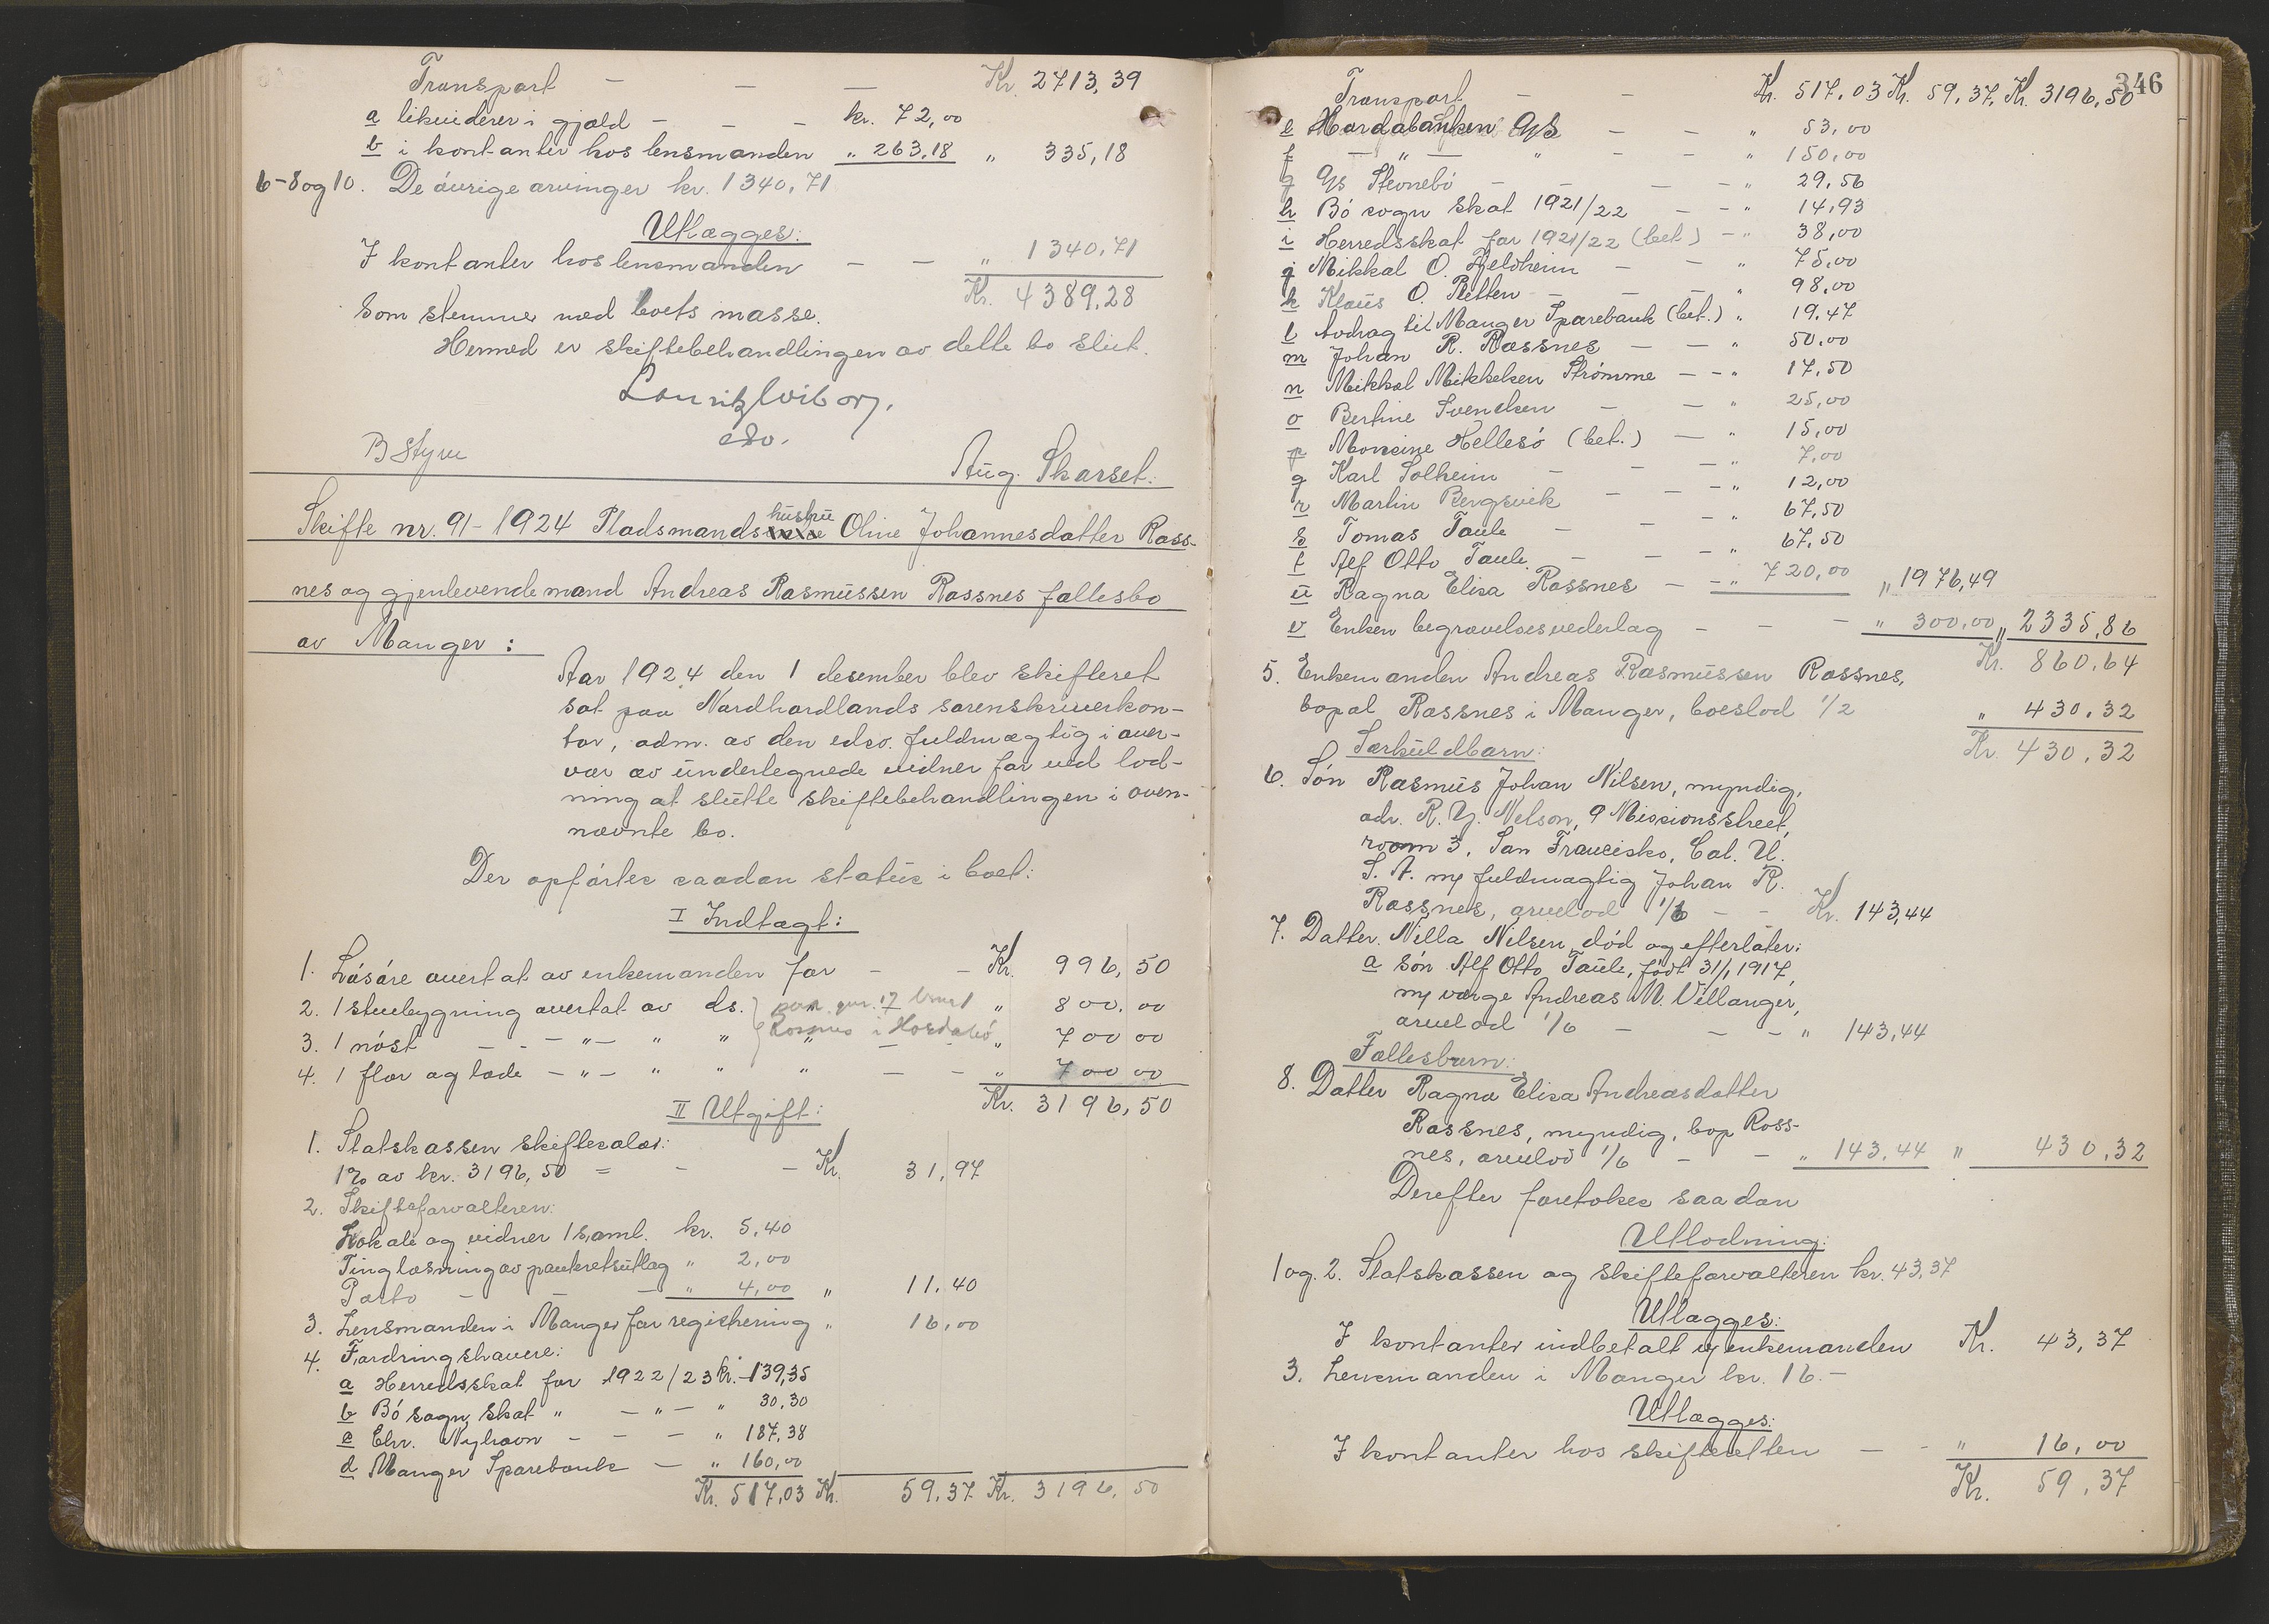 Transport — — — Kr. 2713,39
a likviderer i gjæld — — — kr. 72,00
b i kontanter hos lensmanden " 263,18 " 335,18
6-8 og 10. De øvrige arvinger kr. 1340,71
Utlægges:
I kontanter hos lensmanden — — " 1340,71
Kr. 4389,28
Som stemmer med boets masse.
Hermed er skiftebehandlingen av dette bo slut.
Lauritz Wiborg.
edv.
B Styve
Aug. Skarset.
Skifte nr. 91 - 1924 Pladsmandshustru Oline Johannesdatter Ross-
nes og gjenlevende mand Andreas Rasmussen Rossnes fællesbo
av Manger:
Aar 1924 den 1 desember blev skifteret
sat paa Nordhordlands sorenskriverkon-
tor, adm. av den edsv. fuldmægtig i over-
vær av undertegnede vidner for ved lod-
ning at slutte skiftebehandlingen i oven-
nævnte bo.
Der opførtes saadan status i boet:
I Indtægt:
1. Løsøre overtat av enkemanden for — — Kr. 996,50
2. 1 stuebygning overtat av ds. paa gnr. 17 bnr 1 " 800,00
3. 1 nøst — - - " — " " Rossnes i Hordabø " 700 00
4. 1 flor og løde — " — " " " — — " 700 00
Kr. 3196,50
II Utgift:
1. Statskassen skiftesalær:
1% av kr. 3196,50 = - — Kr. 31,97
2. Skifteforvalteren:
Lokale og vidner 1 saml. kr. 5,40
Tinglæsning av panteretsutlæg " 2,00
Porto - — " 4,00 " 11,40
3. Lensmanden i Manger for registrering " 16,00
4. Fordringshavere:
a Herredsskat for 1922/23 kr. 139,35
b Bø sogn skat " — " — " 30,30
c Chr. Nyhavn — — — " 187,38
d Manger Sparebank — " 160,00
Kr. 517,03 Kr. 59,37 Kr. 3196,50
346
Transport — — Kr. 517,03 Kr. 59,37, Kr. 3196,50
e Hordabanken A/S — — " 53,00
f — " — " - — " 150,00
g A/S Stevnebø — — — — " 29,56
h Bø sogn skat 1921/22 — — " 14,93
i Herredsskat for 1921/22 (bet.) — " 38,00
j Mikkal O. Fjeldheim — — " 75,00
k Klaus O. Retten — — — " 98,00
l Avdrag til Manger Sparebank (bet.) " 19,47
m Johan R. Rossnes — — " 50,00
n Mikkal Mikkelsen Strømme — - " 17,50
o Bertine Svendsen — — " 25,00
p Monsine Hellesø (bet.) — " 15,00
q Karl Solheim — — — " 7,00
r Martin Bergsvik — — — " 12,00
s Tomas Taule — — — " 67,50
t Alf Otto Taule — — — " 67,50
u Ragna Elisa Rossnes — — " 720,00 " 1976,49
v Enken begravelsesvederlag — — — " 300,00 " 2335,86
Kr. 860,64
5. Enkemanden Andreas Rasmussen Rossnes,
bopæl Rossnes i Manger, boeslod 1/2 " 430,32
Kr. 430,32
Særkuldbarn:
6. Søn Rasmus Johan Nilsen, myndig,
adr. R. Y. Nelson, 9 Missionsstreet,
room 3, San Francisko, Cal. U.
S. A. m/ fuldmægtig Johan R.
Rossnes, arvelod 1/6 — — Kr. 143,44
7. Datter Nilla Nilsen død og efterlater:
a søn Alf Otto Taule, født 31/1 1917,
m/ værge Andreas N. Villanger,
arvelod 1/6 — — — " 143,44
Fællesbarn:
8. Datter Ragna Elisa Andreasdatter
Rossnes, myndig, bop Ross-
nes, arvelod 1/6 — — " 143,44 " 430,32
Derefter foretokes saadan
Utlodning:
1 og 2. Statskassen og skifteforvalteren kr. 43,37
Utlægges:
I kontanter indbetalt av enkemanden Kr. 43,37
3. Lensmanden i Manger kr. 16.-
Utlægges:
I kontanter hos skifteretten — - " 16,00
Kr. 59,37